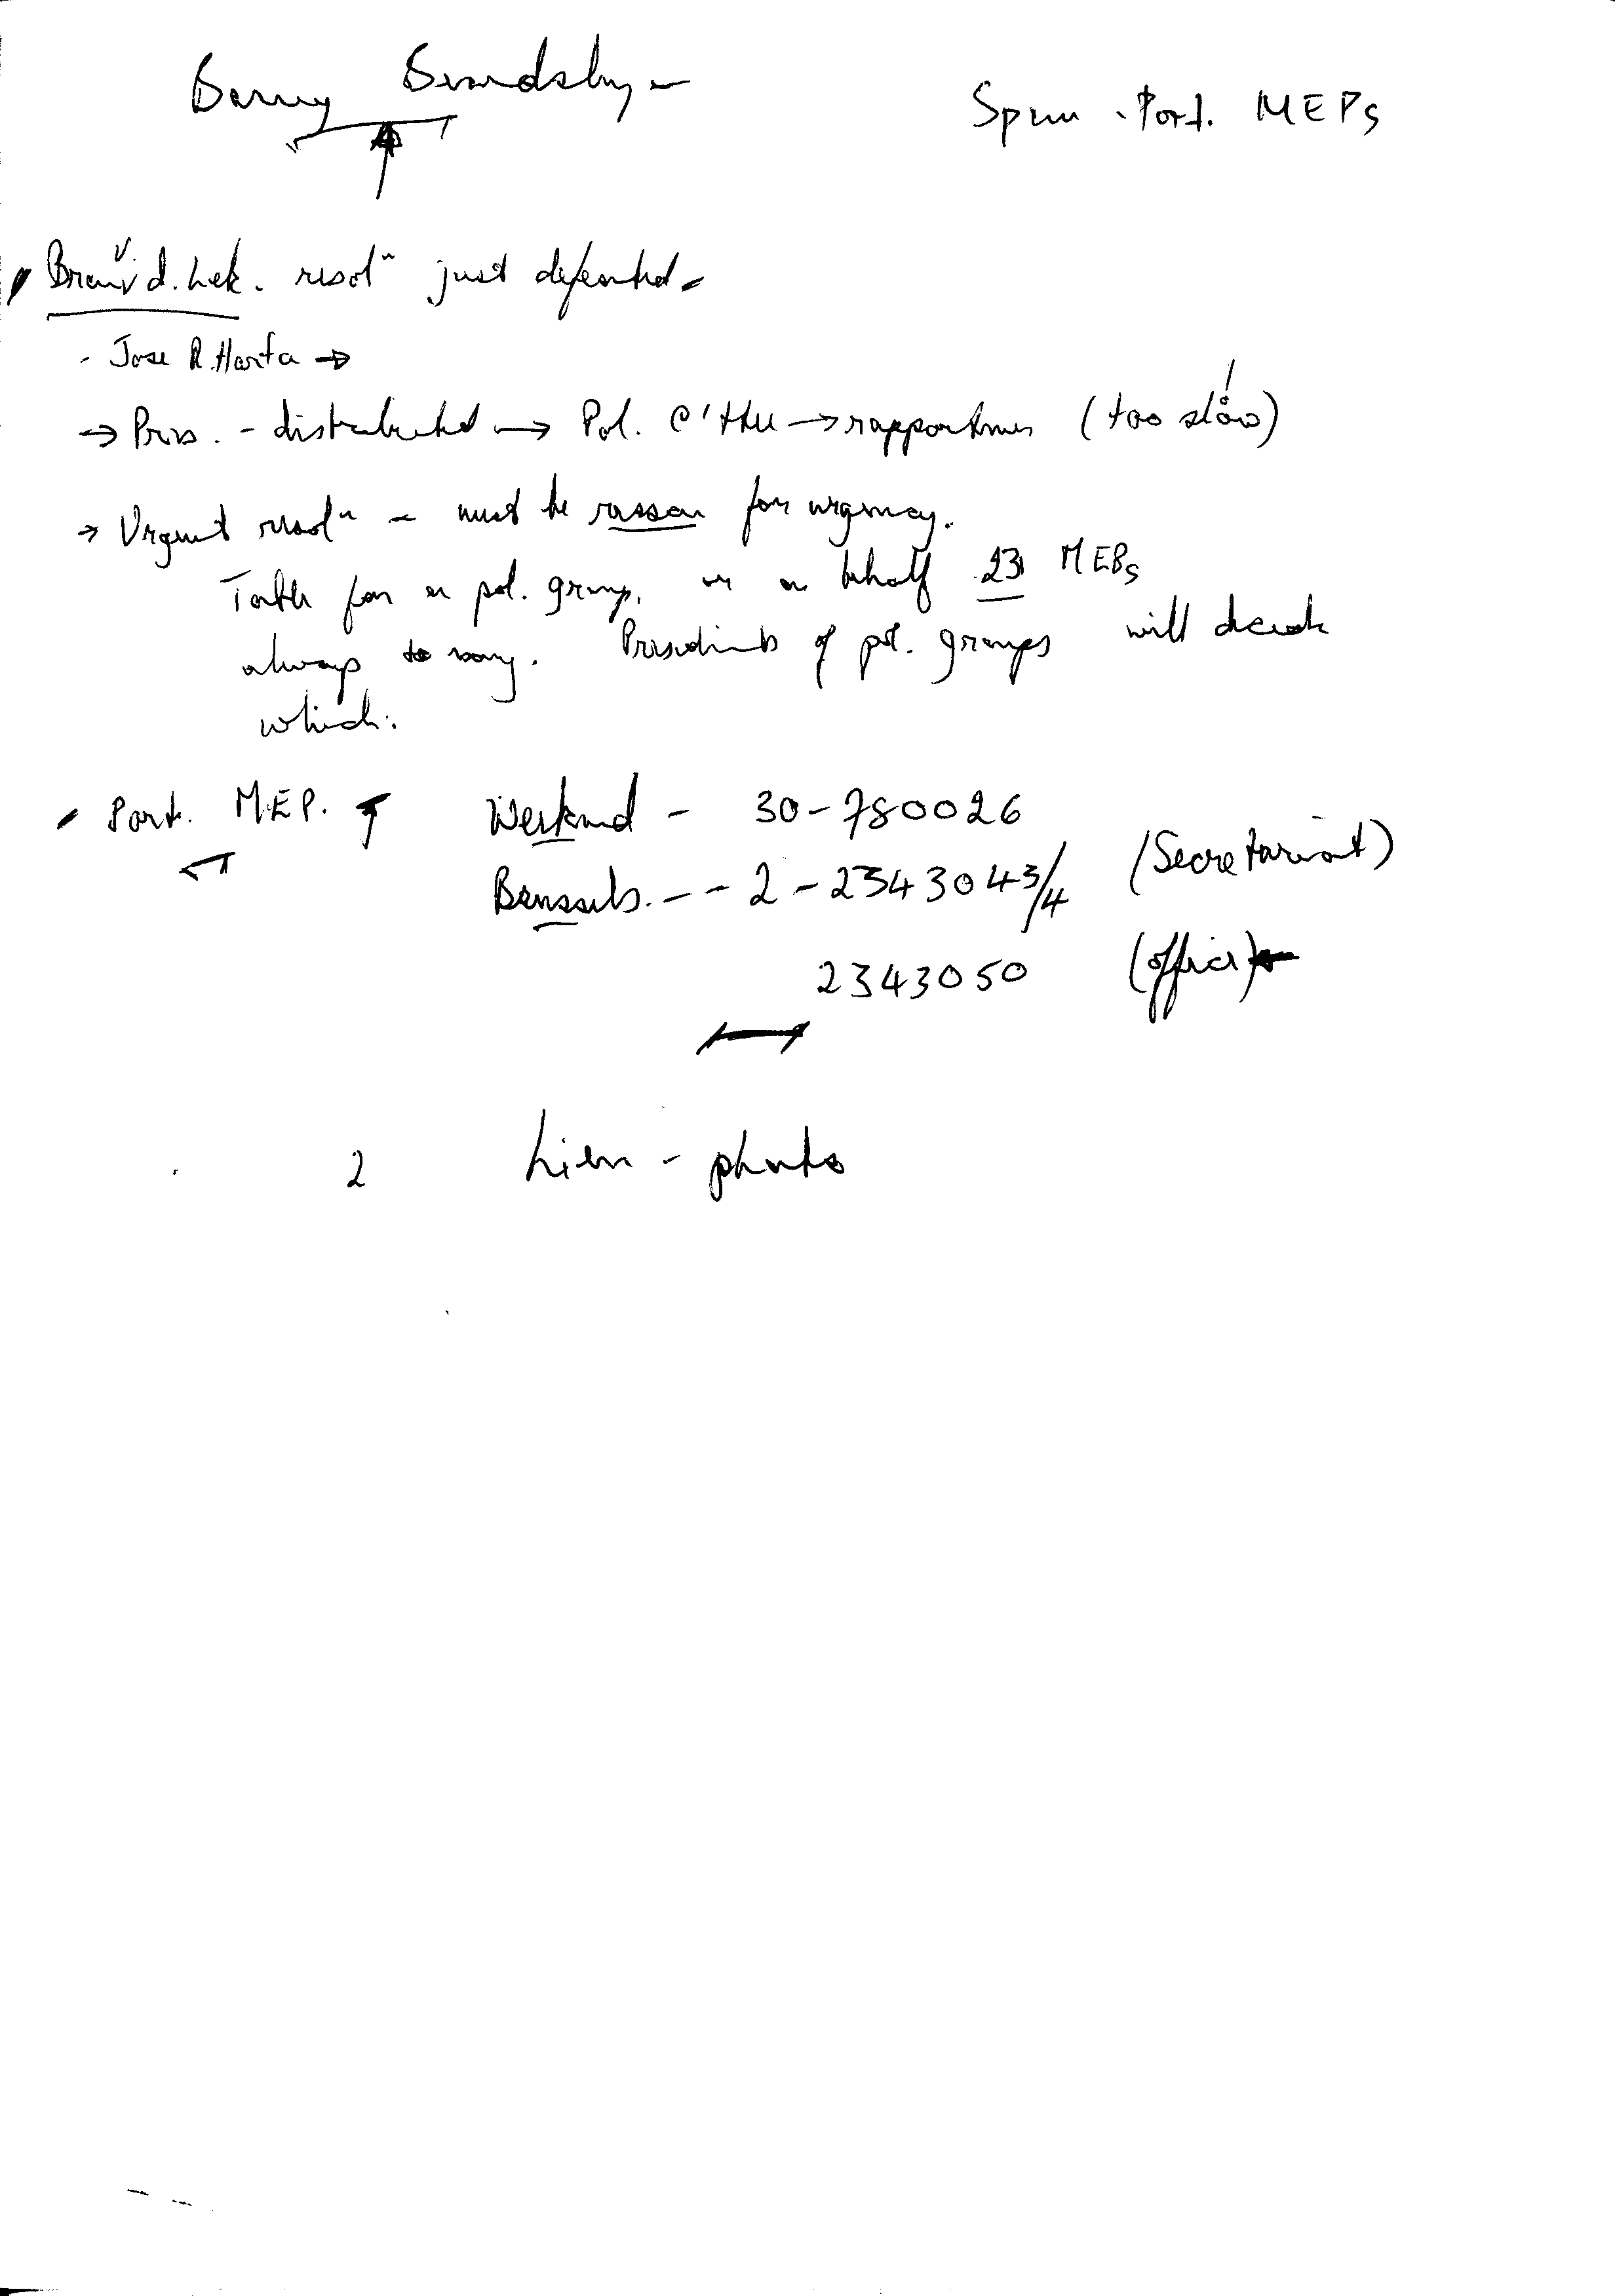 Barry
Span . Port. MEPs
resolⁿ just defeated -
- Jose R. Horta →
→ Pres. - distributed → Pol. C'ttee → rapporteur (too slow)
→ Urgent resolⁿ - must be reason for urgency.
Table for a pol. group, or on behalf 23 MEPs
always too many. Presidents of pol. groups will decide
which.
Port. M.E.P. Weekend - 30-780026
Brussels. -- 2-2343043/4 (Secretariat)
2343050 (office)
2 Liem - photo